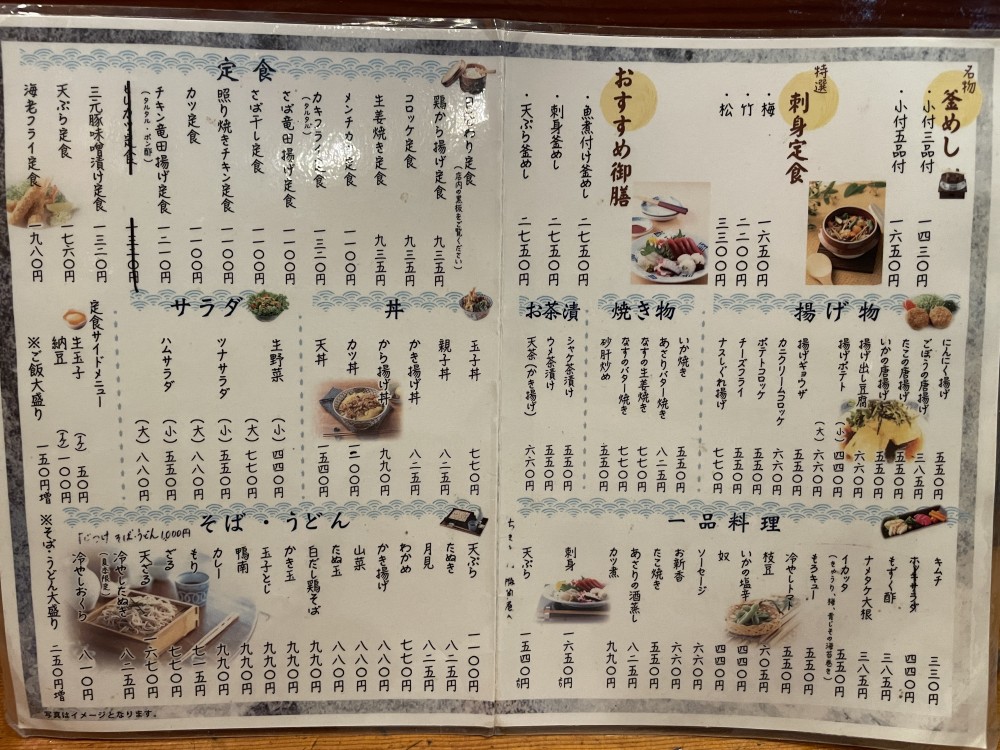 名物 釜めし
・小付三品付 一四三〇円
・小付五品付 一六五〇円
特選 刺身定食
・梅 一六五〇円
・竹 二二〇〇円
・松 三三〇〇円
おすすめ御膳
・魚煮付け釜めし 二七五〇円
・刺身釜めし 二七五〇円
・天ぷら釜めし 二七五〇円
定食
日がわり定食
(店内の黒板をご覧ください)
鶏から揚げ定食 九三五円
コロッケ定食 九三五円
生姜焼き定食 九三五円
メンチカツ定食 一一〇〇円
カキフライ定食 一三二〇円
(タルタル)
さば竜田揚げ定食 一一〇〇円
さば干し定食 一一〇〇円
照り焼きチキン定食 一一〇〇円
カツ定食 一一〇〇円
チキン竜田揚げ定食 一二一〇円
(タルタル・ポン酢)
三元豚味噌漬け定食 一三二〇円
天ぷら定食 一七六〇円
海老フライ定食 一九八〇円
揚げ物
にんにく揚げ 五五〇円
ごぼうの唐揚げ 三八五円
たこの唐揚げ 五五〇円
いかの唐揚げ 五五〇円
揚げ出し豆腐 六六〇円
揚げポテト (小) 四四〇円
(大) 六六〇円
揚げギョウザ 五五〇円
カニクリームコロッケ 六六〇円
ポテトコロッケ 五五〇円
チーズフライ 五五〇円
ナスしぐれ揚げ 七七〇円
焼き物
いか焼き 五五〇円
あさりバター焼き 八二五円
なすの生姜焼き 七七〇円
なすのバター焼き 七七〇円
砂肝炒め 五五〇円
お茶漬
シャケ茶漬け 五五〇円
ウメ茶漬け 五五〇円
天茶(かき揚げ) 六六〇円
丼
玉子丼 七七〇円
親子丼 八二五円
かき揚げ丼 八二五円
から揚げ丼 九九〇円
カツ丼 一一〇〇円
天丼 一五四〇円
サラダ
生野菜 (小) 四四〇円
(大) 七七〇円
ツナサラダ (小) 五五〇円
(大) 八八〇円
ハムサラダ (小) 五五〇円
(大) 八八〇円
定食サイドメニュー
生玉子 (エ) 五〇円
納豆 (エ) 一〇〇円
※ご飯大盛り 一五〇円増
一品料理
キムチ 三三〇円
四四〇円
もずく酢 三八五円
ナメタケ大根 三八五円
イカッタ 五五〇円
(きゅうり、梅、青じその海苔巻き)
もろキュー 五五〇円
冷やしトマト 五五〇円
枝豆 六〇五円
いかの塩辛 四四〇円
奴 四四〇円
ソーセージ 六六〇円
お新香 六六〇円
たこ焼き 五五〇円
あさりの酒蒸し 八二五円
カツ煮 九九〇円
刺身 一六五〇円
天ぷら 一五四〇円
そば・うどん
天ぷら 一一〇〇円
たぬき 八二五円
月見 八二五円
わかめ 七七〇円
かき揚げ 九九〇円
山菜 八八〇円
たぬ玉 八八〇円
白だし鶏そば 九九〇円
かき玉 九九〇円
玉子とじ 九九〇円
鴨南 九九〇円
カレー 九九〇円
もり 七一五円
ざる 七七〇円
天ざる 一六七〇円
冷やしたぬき 八二五円
(夏季限定)
冷やしおくら 八一〇円
※そば・うどん大盛り 二五〇円増
そば・うどん 1,000円
写真はイメージとなります。